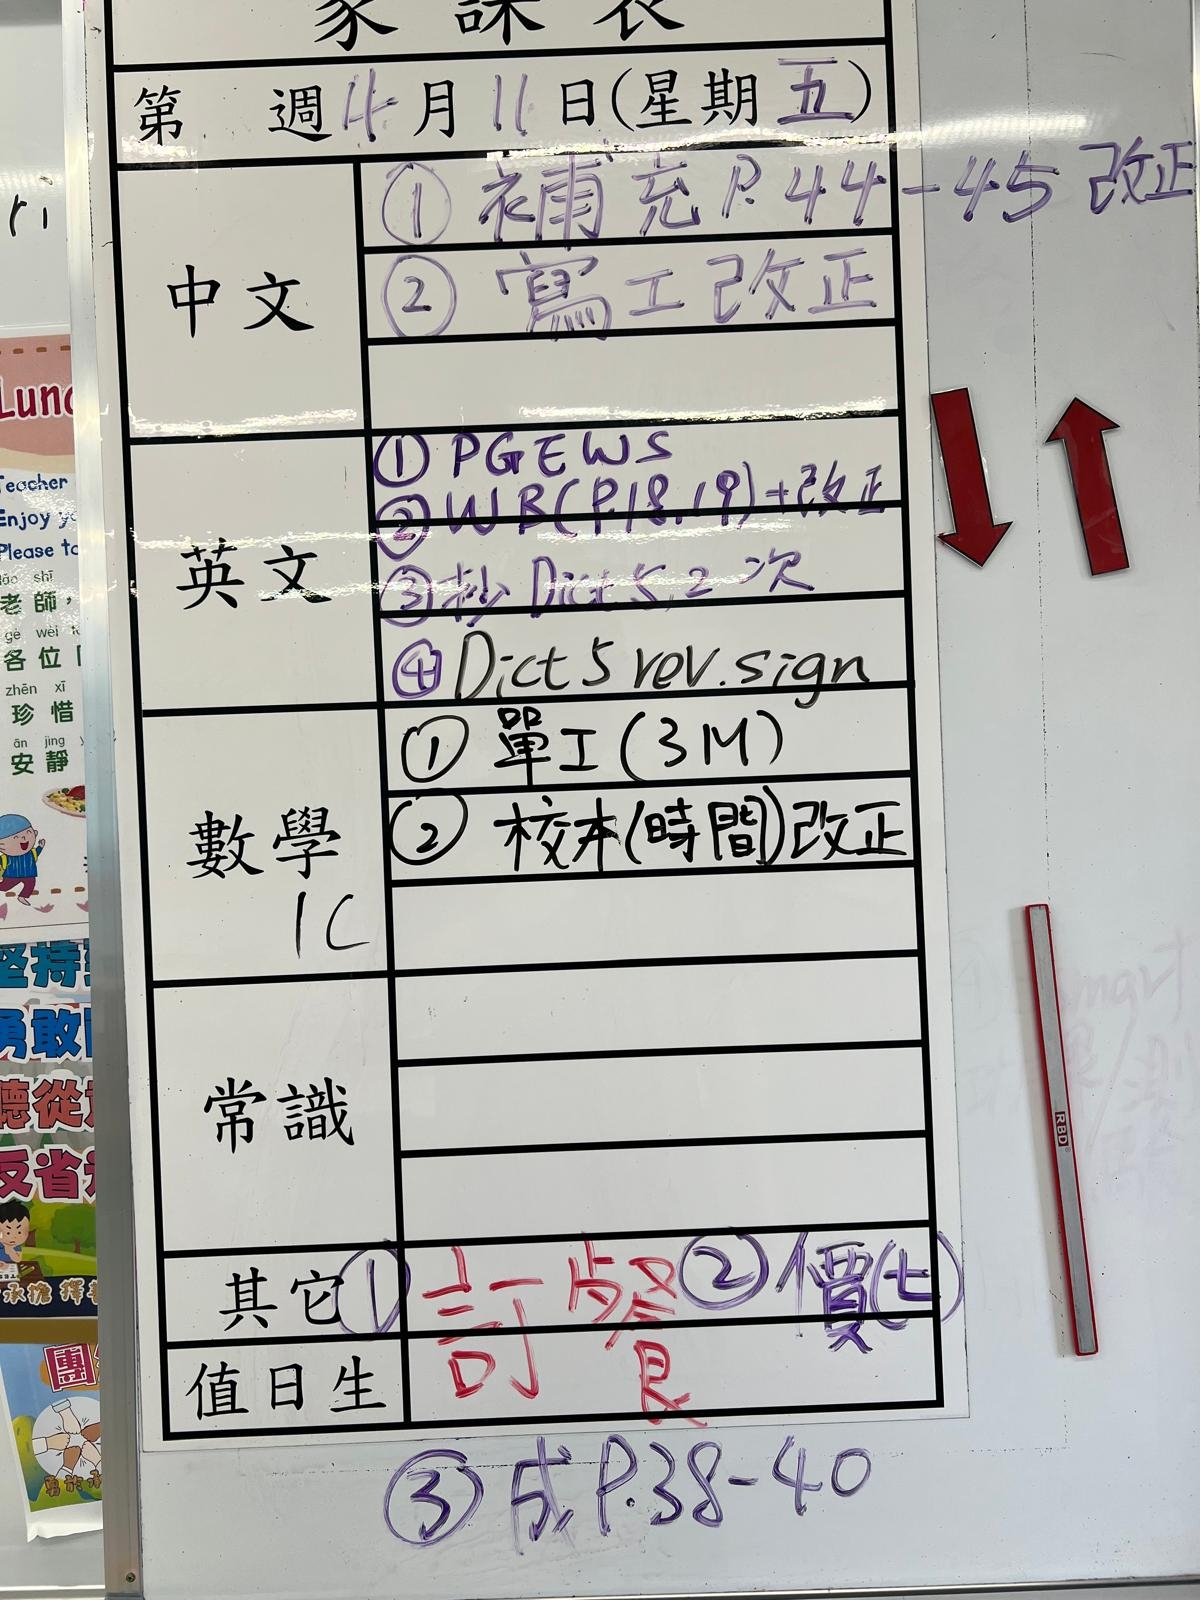 家課表
第 週 4月11日(星期五)
中文
① 補充P.44-45 改正
② 寫工改正
英文
① PGEWS
② WB(P.18,19)+改正
③ 抄 Dict 5, 2次
④ Dict 5 rev. sign
數學
1C
① 單工(3M)
② 校本(時間)改正
常識
其它 ① 訂餐 ② 價(七)
值日生
③ 成P.38-40
RBD
Teacher
Enjoy
Please
老師,
各位
珍惜
安靜
堅持
勇敢
聽從
反省
承擔